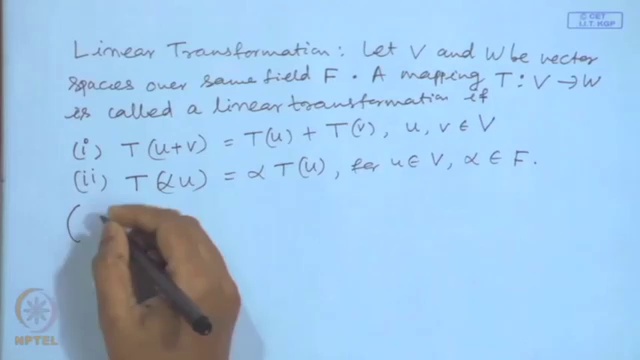 © CET
I.I.T. KGP
Linear Transformation: Let V and W be vector
spaces over same field F. A mapping T: V → W
is called a linear transformation if
(i) T(u+v) = T(u) + T(v), u, v ∈ V
(ii) T(αu) = α T(u), for u ∈ V, α ∈ F.
(
NPTEL